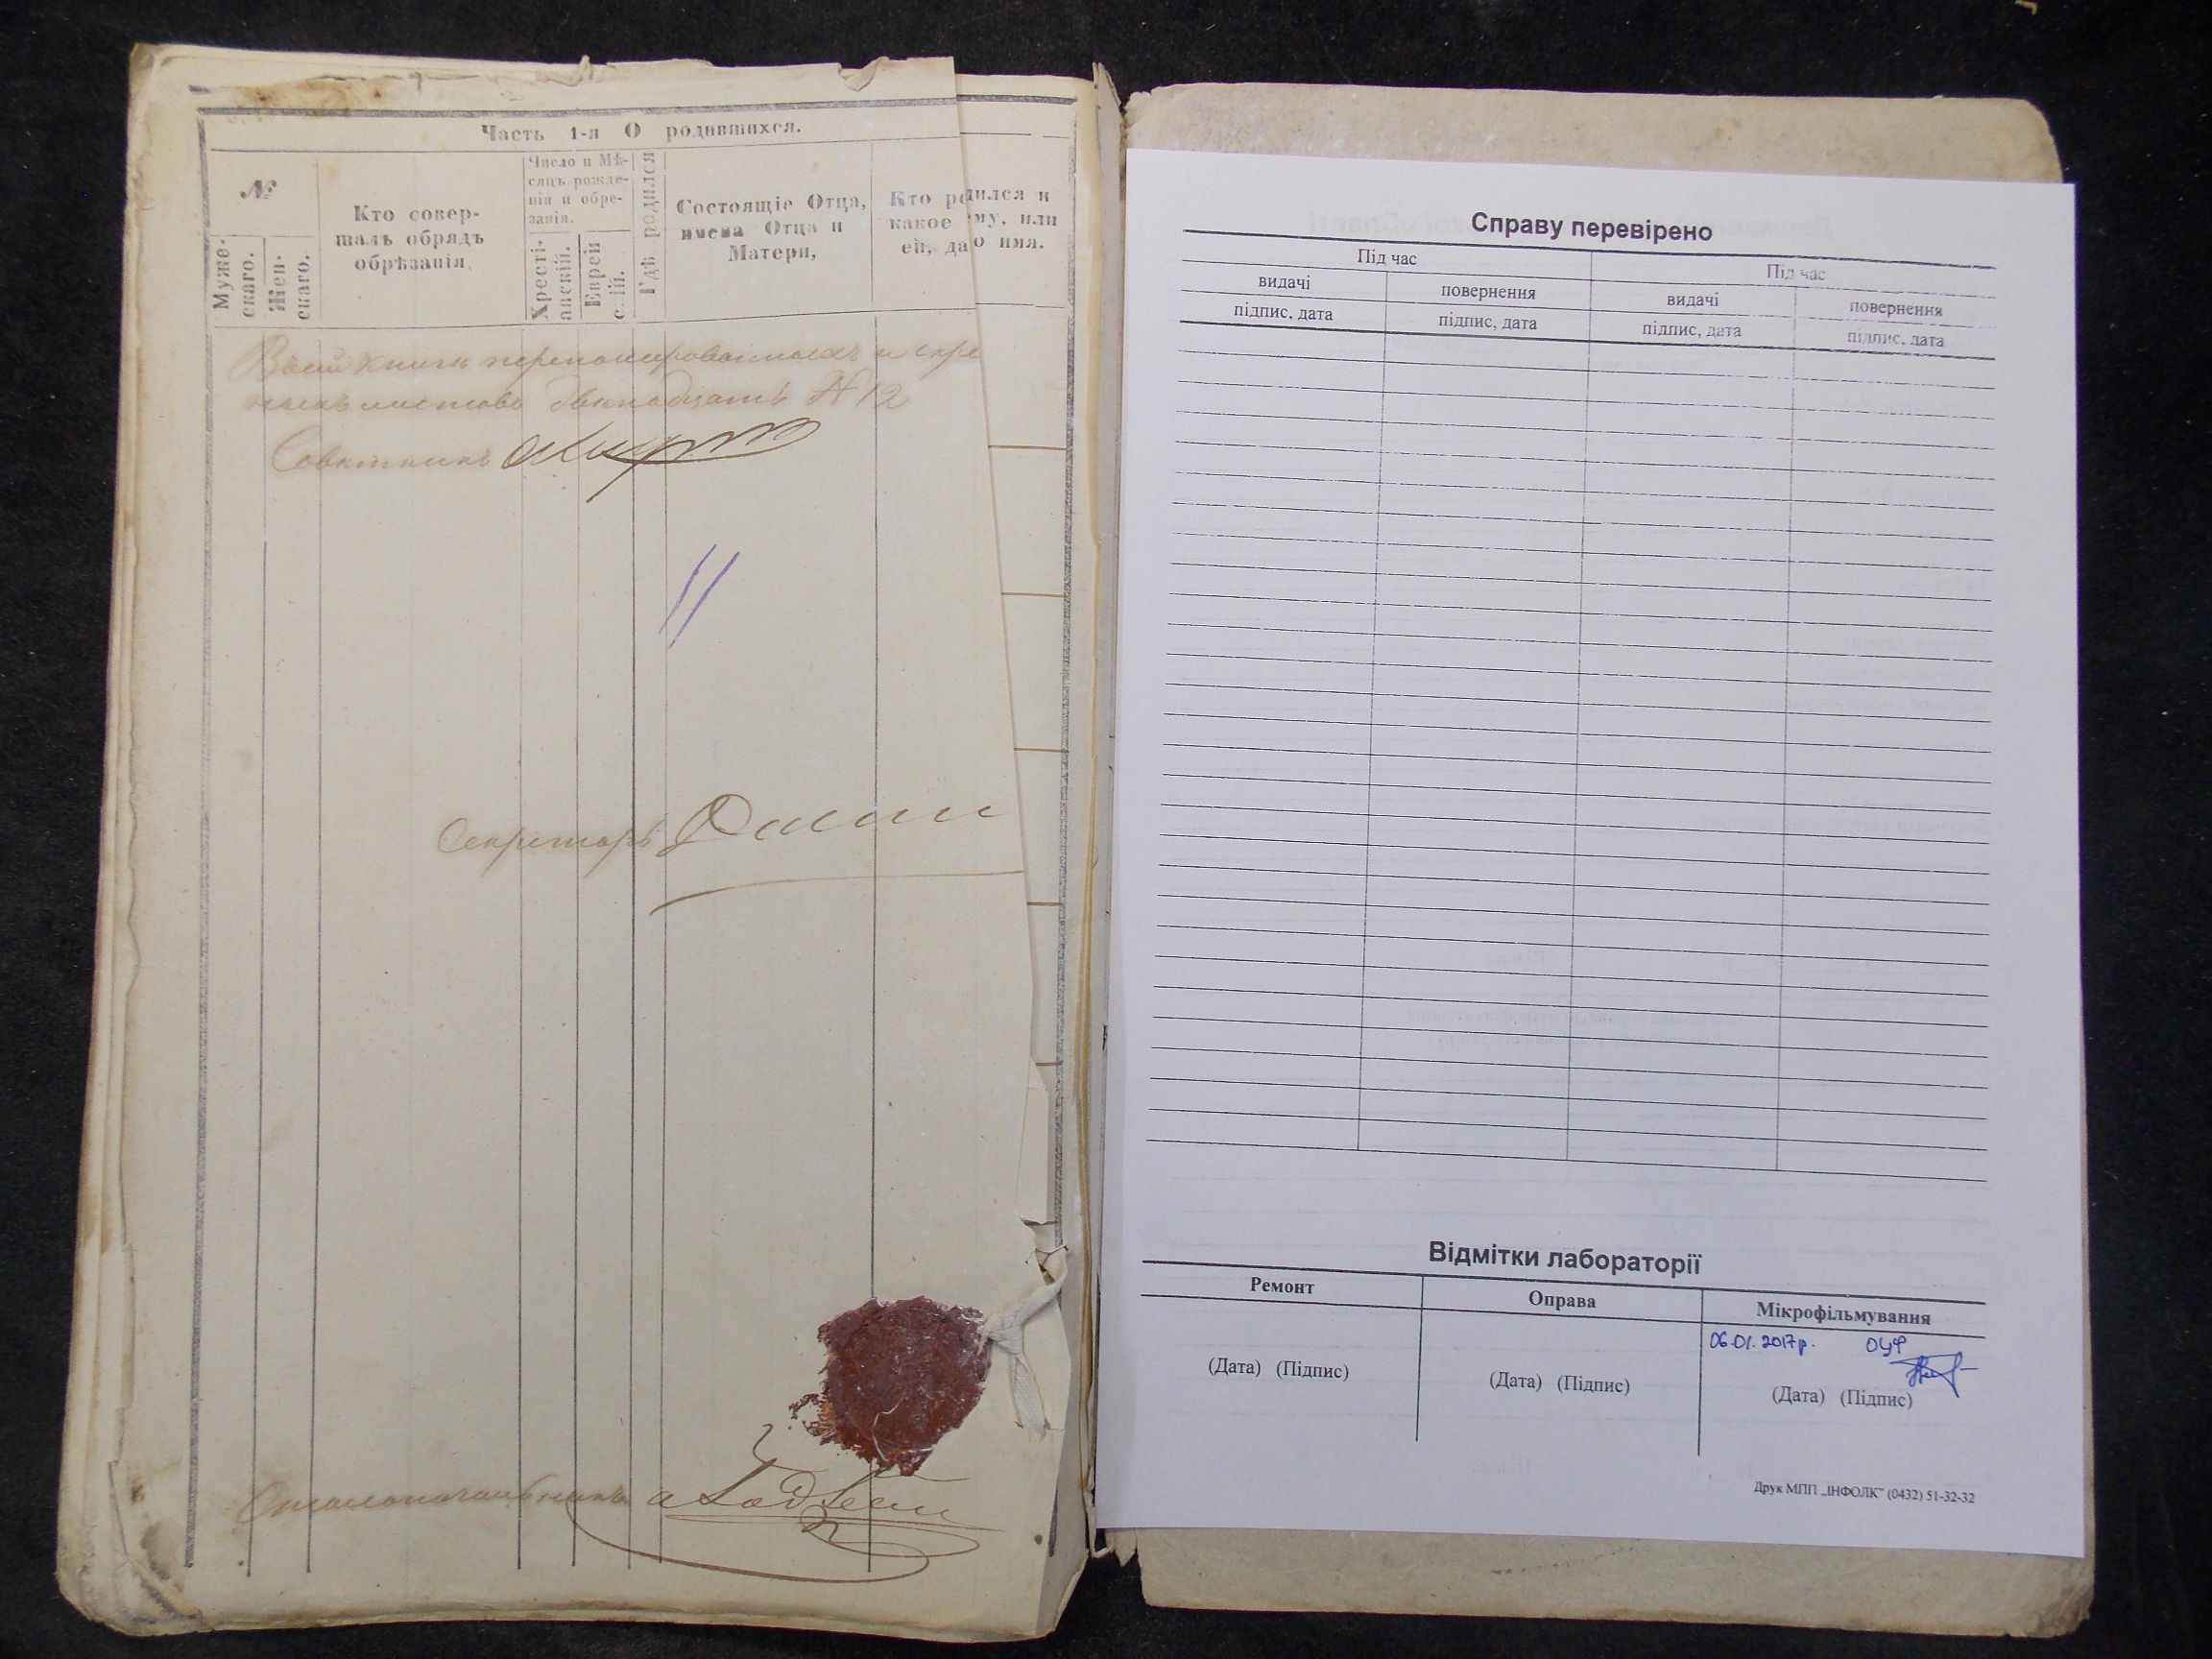 Часть 1-я О родившихся.
№
Муже-
скаго.
Жен-
скаго.
Кто совер-
шалъ обрядъ
обрѣзанія
Число и Мѣ-
сяцъ рожде-
нія и обре-
занія.
Хрест­і-
анскій.
Еврей
скій.
Гдѣ родился
Состоящіе Отца,
имена Отца и
Матери,
Кто родился и
какое ему, или
ей, дано имя.
Въ сей книгѣ перенумерованныхъ и скрѣ
листовъ двѣнадцать № 12
Совѣтникъ
Секретарь
Столоначальникъ
Справу перевірено
Під час
Під час
видачі
повернення
видачі
повернення
підпис, дата
підпис, дата
підпис, дата
підпис, дата
Відмітки лабораторії
Ремонт
Оправа
Мікрофільмування
06.01.2017р. ОЦФ
(Дата) (Підпис)
(Дата) (Підпис)
(Дата) (Підпис)
Друк МПП „ІНФОЛК” (0432) 51-32-32